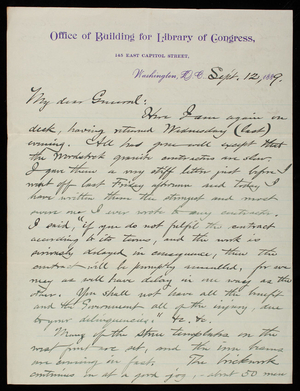 Office of Building for Library of Congress,
145 EAST CAPITOL STREET,
Washington, D.C. Sept. 12, 1889.
My dear General:
Here I am again on
desk, having returned Wednesday (last)
evening. All has gone well except that
the Woodstock granite contractors are slow.
I gave them a very stiff letter just before I
went off last Friday afternoon and today I
have written them the strongest and most
severe one I ever wrote to any contractor.
I said, "if you do not fulfil the contract
according to its terms, and the work is
seriously delayed in consequence, then the
contract will be promptly annulled, for we
may as well have delay in one way as the
other. You shall not have all the benefit
and the Government all of the injury, due
to your delinquencies." &c, &c
Many of the stone templates on the
west front are set, and the iron beams
are coming in fast. The brickwork
continues in at a good jog,—about 50 men